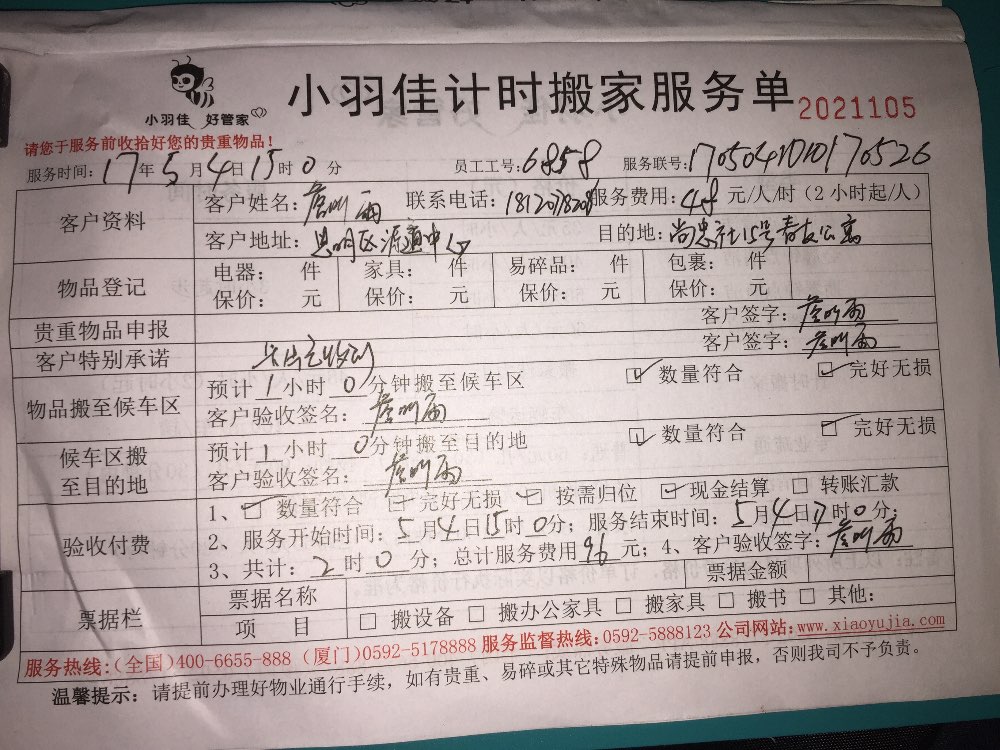 小羽佳 好管家
小羽佳计时搬家服务单 2021105
请您于服务前收拾好您的贵重物品！
服务时间：17年5月4日15时0分 员工工号：6858 服务联号：
客户资料 客户姓名： 联系电话： 服务费用：48元/人/时（2小时起/人）
客户地址：思明区 目的地：
物品登记 电器： 件 家具： 件 易碎品： 件 包裹： 件
保价： 元 保价： 元 保价： 元 保价： 元
贵重物品申报 客户签字：
客户特别承诺 客户签字：
物品搬至候车区 预计1小时0分钟搬至候车区 数量符合 完好无损
客户验收签名：
候车区搬至目的地 预计1小时0分钟搬至目的地 数量符合 完好无损
客户验收签名：
验收付费 1、数量符合 完好无损 按需归位 现金结算 转账汇款
2、服务开始时间：5月4日15时0分；服务结束时间：5月4日17时0分；
3、共计：2时0分；总计服务费用96元；4、客户验收签字：
票据栏 票据名称 票据金额
项 目 搬设备 搬办公家具 搬家具 搬书 其他：
服务热线：（全国）400-6655-888（厦门）0592-5178888 服务监督热线：0592-5888123 公司网站：www.xiaoyujia.com
温馨提示：请提前办理好物业通行手续，如有贵重、易碎或其它特殊物品请提前申报，否则我司不予负责。